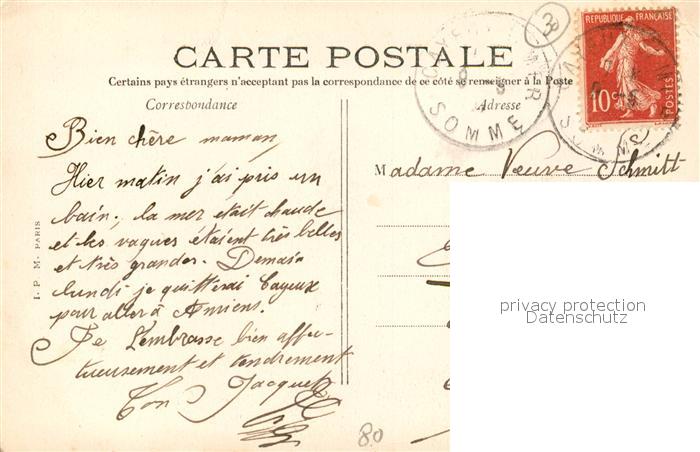 CARTE POSTALE
Certains pays étrangers n'acceptant pas la correspondance de ce côté se renseigner à la Poste
Correspondance
Adresse
Bien chère maman,
Hier matin j'ai pris un
bain, la mer était chaude
et les vagues étaient très belles
et très grandes. Demain
lundi je quitterai Cayeux
pour aller à Amiens.
Je t'embrasse bien affec-
tueusement et tendrement
Ton Jacques
Madame Veuve Schmitt
I. P. M. PARIS
REPUBLIQUE FRANÇAISE
10c
POSTES
SOMME
3
80
privacy protection
Datenschutz